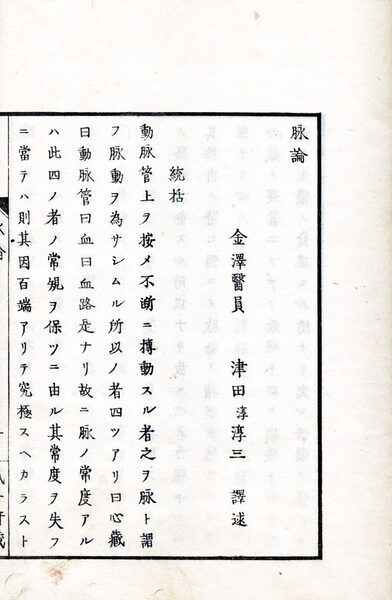 脉論
金澤醫員 津田淳三 譯述
統括
動脉管上ヲ按メ不断ニ搏動スル者之ヲ脉ト謂
フ脉動ヲ為サシムル所以ノ者四ツアリ曰心藏
曰動脉管曰血曰血路是ナリ故ニ脉ノ常度アル
ハ此四ノ者ノ常䂓ヲ保ツニ由ル其常度ヲ失フ
ニ當テハ則其因百端アリテ究極スヘカラスト